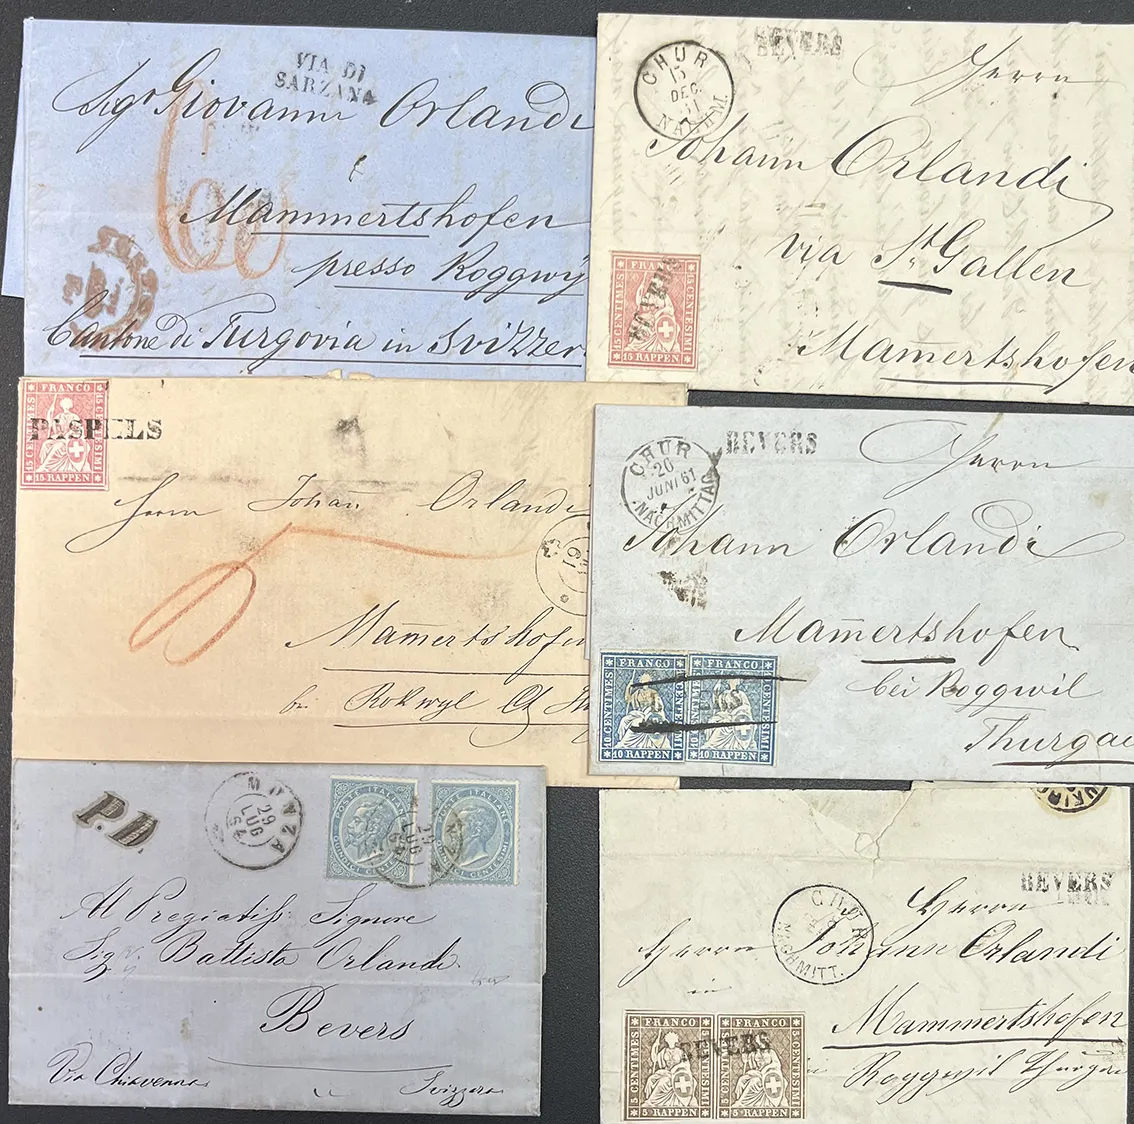 VIA DI
SARZANA
Sigr Giovanni Orlandi
à
Mammertshofen
presso Roggwÿ
Cantone di Turgovia in Svizzer
BEVERS
CHUR
15
DEC.
61
NACHM.
Herrn
Johann Orlandi
via St Gallen
Mamertshofen
FRANCO
15 CENTIMES
15 CENTESIMI
15 RAPPEN
BEVERS
FRANCO
15 CENTIMES
15 CENTESIMI
15 RAPPEN
PASPELS
Herrn Johañ Orlandi
61
Mam̄ertshofen
bei Rokwyl
CHUR
20
JUNI 61
NACHMITTAG
BEVERS
Herrn
Johann Orlandi
Mam̄ertshofen
bei Roggwil
Thurgau
FRANCO
10 CENTIMES
10 CENTESIMI
10 RAPPEN
FRANCO
10 CENTESIMI
10 RAPPEN
P.D.
MONZA
29
LUG
64
POSTE ITALIANE
QUINDICI CENTESIMI
POSTE ITALIANE
QUINDICI CENTESIMI
29
LUG
64
Al Pregiatiss. Signore
Sigr Battista Orlandi
Bevers
Via Chiavenna
Svizzera
BEVERS
CHUR
NACHMITT.
Herrn
Herrn Johann Orlandi
in
Mammertshofen
Roggwil Thurgau
FRANCO
5 CENTIMES
5 CENTESIMI
5 RAPPEN
FRANCO
5 CENTIMES
5 CENTESIMI
5 RAPPEN
BEVERS